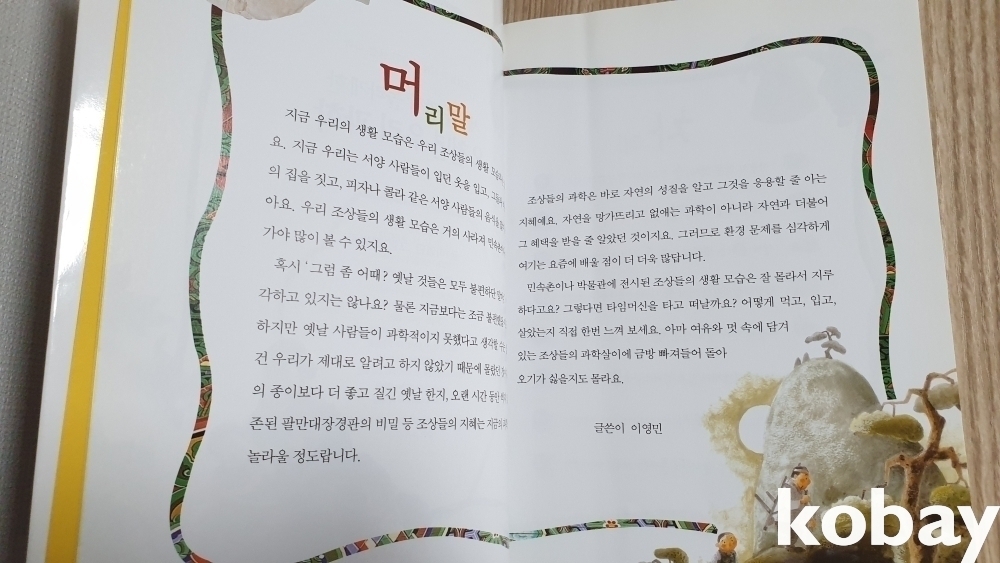 머리말
지금 우리의 생활 모습은 우리 조상들의 생활
요. 지금 우리는 서양 사람들이 입던 옷을 입고,
의 집을 짓고, 피자나 콜라 같은 서양 사람들의 음식을
아요. 우리 조상들의 생활 모습은 거의 사라져
가야 많이 볼 수 있지요.
혹시 '그럼 좀 어때? 옛날 것들은 모두 불편하단
각하고 있지는 않나요? 물론 지금보다는 조금
하지만 옛날 사람들이 과학적이지 못했다고 생각할
건 우리가 제대로 알려고 하지 않았기 때문에 몰랐던
의 종이보다 더 좋고 질긴 옛날 한지, 오랜 시간 동안
존된 팔만대장경판의 비밀 등 조상들의 지혜는 지금의
놀라울 정도랍니다.
조상들의 과학은 바로 자연의 성질을 알고 그것을 응용할 줄 아는
지혜예요. 자연을 망가뜨리고 없애는 과학이 아니라 자연과 더불어
그 혜택을 받을 줄 알았던 것이지요. 그러므로 환경 문제를 심각하게
여기는 요즘에 배울 점이 더 더욱 많답니다.
민속촌이나 박물관에 전시된 조상들의 생활 모습은 잘 몰라서 지루
하다고요? 그렇다면 타임머신을 타고 떠날까요? 어떻게 먹고, 입고,
살았는지 직접 한번 느껴 보세요. 아마 여유와 멋 속에 담겨
있는 조상들의 과학살이에 금방 빠져들어 돌아
오기가 싫을지도 몰라요.
글쓴이 이영민
kobay